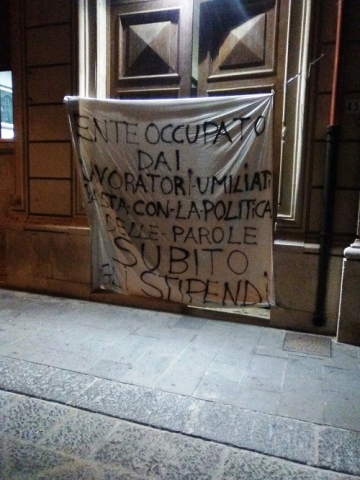 ENTE OCCUPATO
DAI
LAVORATORI-UMILIATI
BASTA-CON-LA POLITICA
DELLE-PAROLE
SUBITO
GLI STIPENDI